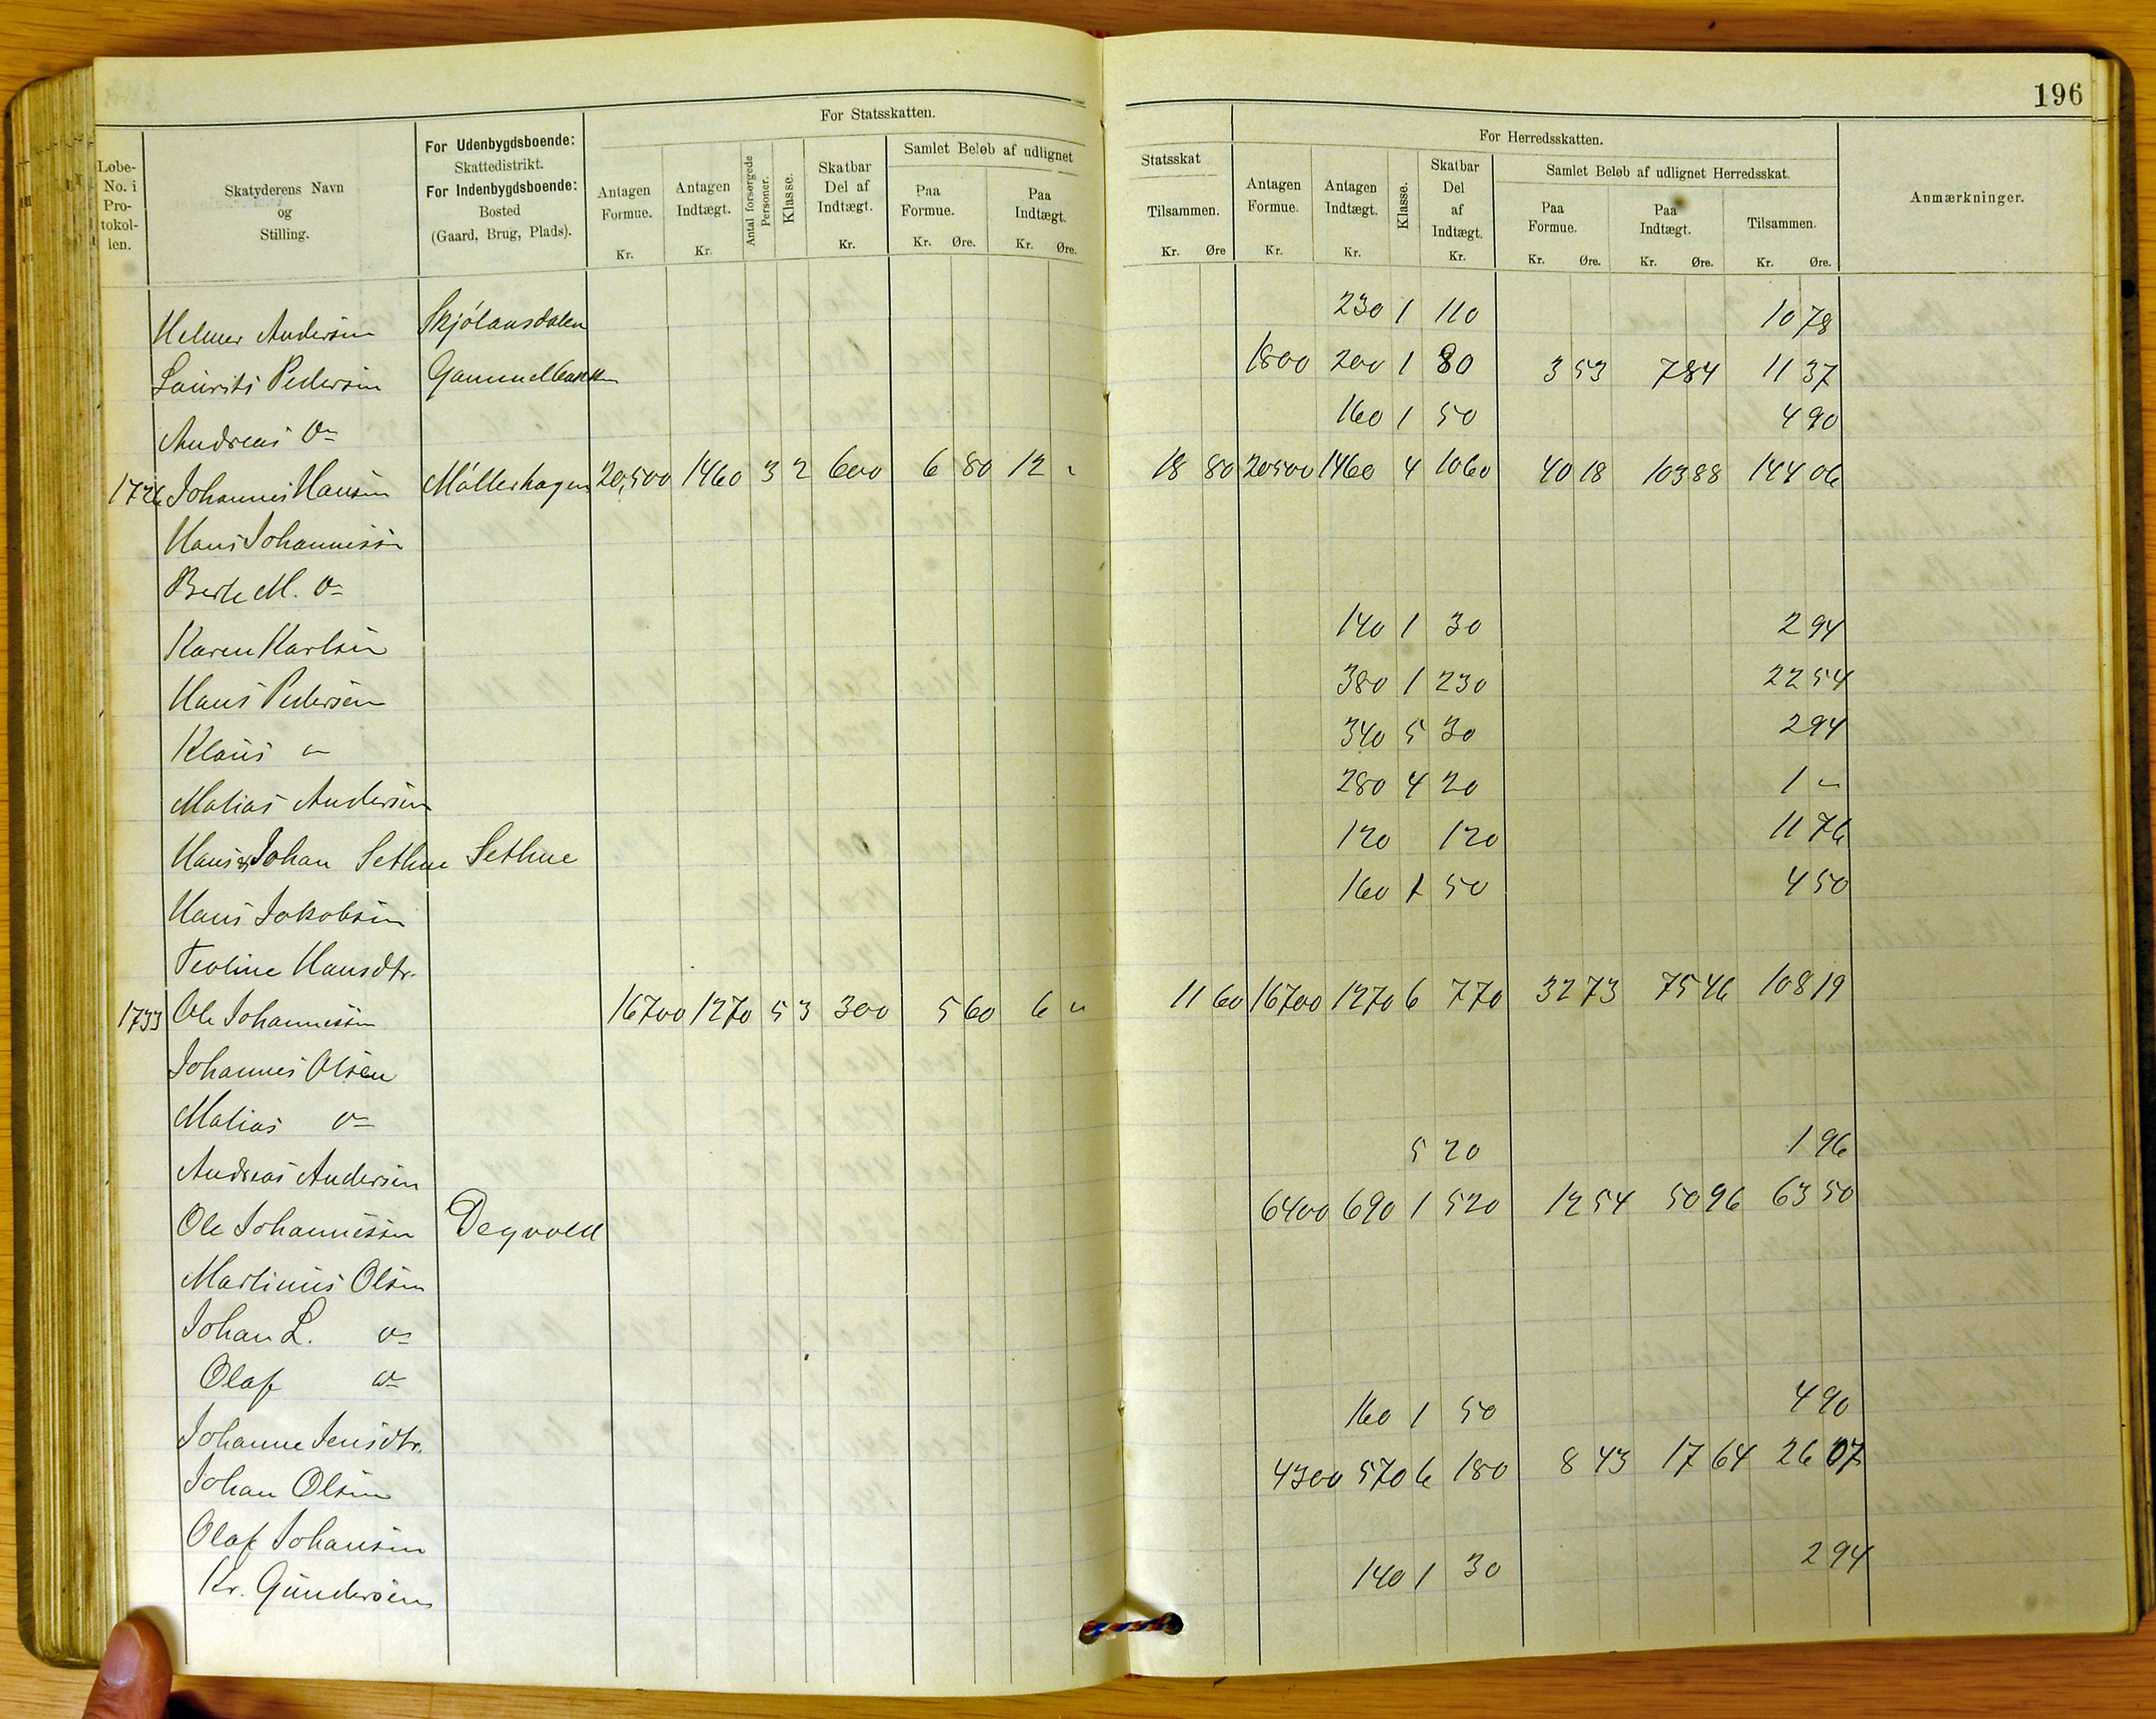 196
For Statsskatten.
Løbe-No. i Pro-tokol-len.
Skatyderens Navn og Stilling.
For Udenbygdsboende: Skattedistrikt. For Indenbygdsboende: Bosted (Gaard, Brug, Plads).
Antagen Formue. Kr.
Antagen Indtægt. Kr.
Antal forsørgede Personer.
Klasse.
Skatbar Del af Indtægt. Kr.
Samlet Beløb af udlignet
Paa Formue. Kr. Øre.
Paa Indtægt. Kr. Øre.
Statsskat
Tilsammen. Kr. Øre
For Herredsskatten.
Antagen Formue. Kr.
Antagen Indtægt. Kr.
Klasse.
Skatbar Del af Indtægt. Kr.
Samlet Beløb af udlignet Herredsskat.
Paa Formue. Kr. Øre.
Paa Indtægt. Kr. Øre.
Tilsammen. Kr. Øre.
Anmærkninger.
Helmer Andersen Skjólausdalen 230 1 110 10 78
Laurits Pedersen Gammelbakken 1800 200 1 80 3 53 7 84 11 37
Andreas 160 1 50 4 90
1726 Johannes Hansen Möllerhagen 20,500 1460 3 2 600 6 80 12 " 18 80 20500 1460 4 1060 40 18 103 88 144 06
Hans Johannessen
Berte M.
Karen Karlsen 140 1 30 2 94
Hans Pedersen 380 1 230 22 54
Klaus " 340 5 30 2 94
Matias Andersen 280 4 20 1 "
Hans & Johan Sethne Sethne 120 120 11 76
Hans Jakobsen 160 1 50 4 50
Teoline Hansdtr.
1733 Ole Johannessen 16700 1270 5 3 300 5 60 6 " 11 60 16700 1270 6 770 32 73 75 46 108 19
Johannes Olsen
Matias
Andreas Andersen 5 20 1 96
Ole Johannessen Degvold 6400 690 1 520 12 54 50 96 63 50
Martinius Olsen
Johan L.
Olaf
Johanne Jensdtr. 160 1 50 4 90
Johan Olsen 4300 570 6 180 8 43 17 64 26 07
Olaf Johansen
Kr. Gundersen 140 1 30 2 94